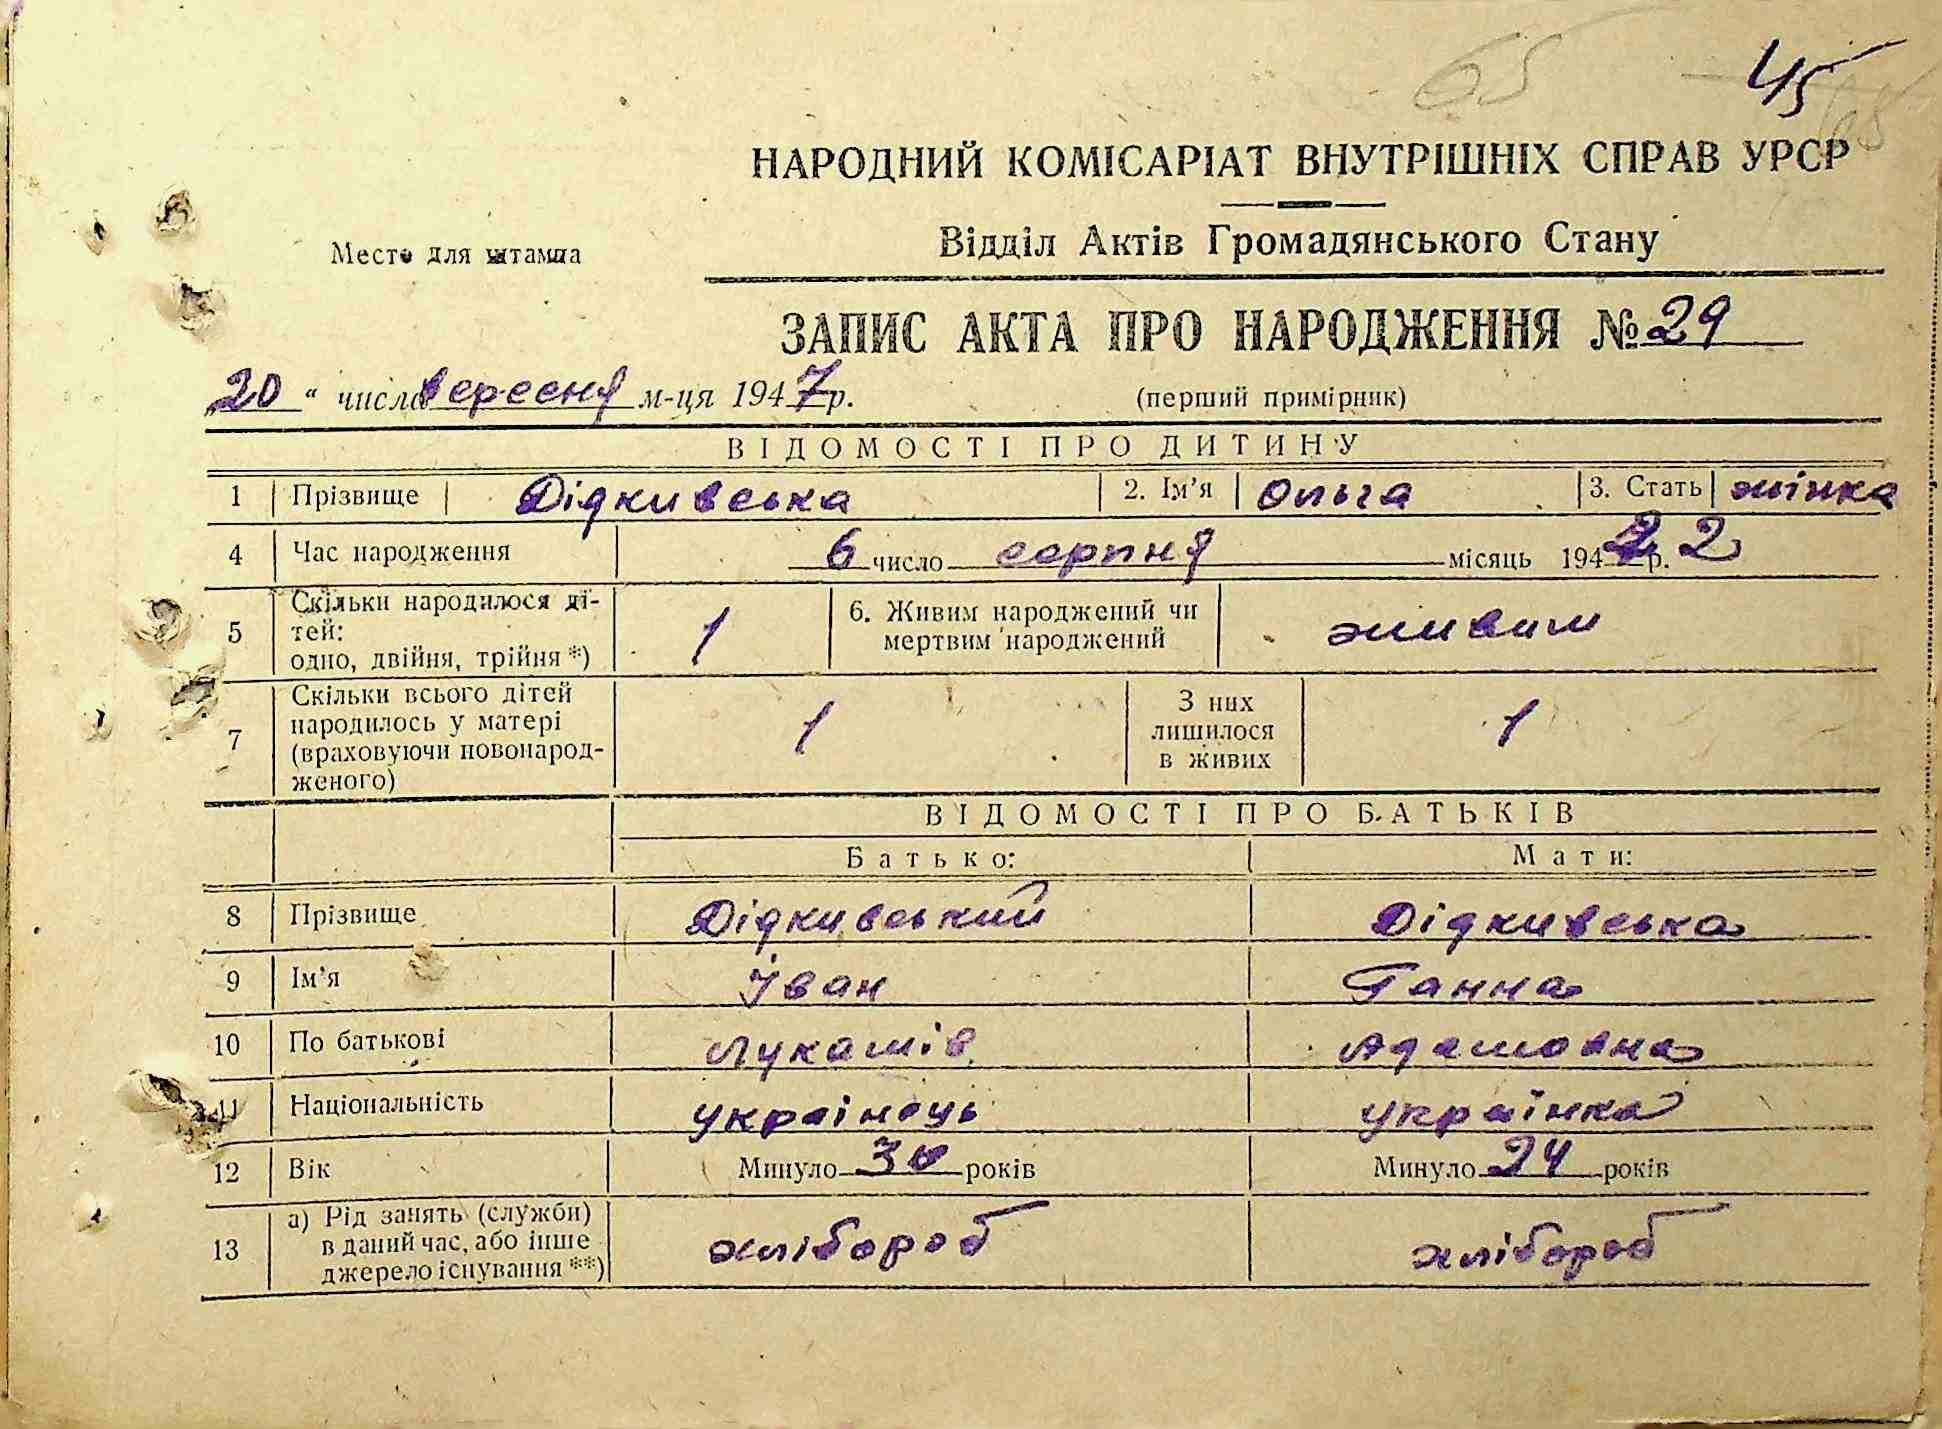 65 45
НАРОДНИЙ КОМІСАРІАТ ВНУТРІШНІХ СПРАВ УРСР
Место для штампа
Відділ Актів Громадянського Стану
ЗАПИС АКТА ПРО НАРОДЖЕННЯ № 29
20 " число вересня м-ця 1947 р. (перший примірник)
ВІДОМОСТІ ПРО ДИТИНУ
1 Прізвище Дідкивська 2. Ім'я Ольга 3. Стать жінка
4 Час народження 6 число серпня місяць 1942 р. 2
5 Скільки народилося ді-
тей:
одно, двійня, трійня *) 1 6. Живим народжений чи
мертвим народжений живим
7 Скільки всього дітей
народилось у матері
(враховуючи новонарод-
женого) 1 З них
лишилося
в живих 1
ВІДОМОСТІ ПРО БАТЬКІВ
Батько: Мати:
8 Прізвище Дідкивський Дідкивська
9 Ім'я Іван Ганна
10 По батькові Лукашів Адамовна
11 Національність українець українка
12 Вік Минуло 30 років Минуло 24 років
13 а) Рід занять (служби)
в даний час, або інше
джерело існування **) хлібороб хлібороб